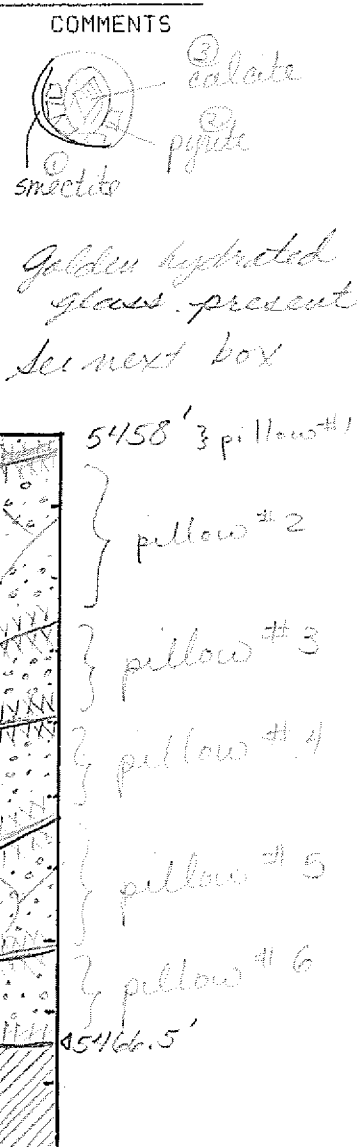 COMMENTS
③
calcite
②
pyrite
①
smectite
Golden hydrated
glass present
See next box
5458' } pillow #1
pillow #2
pillow #3
pillow #4
pillow #5
pillow #6
5466.5'